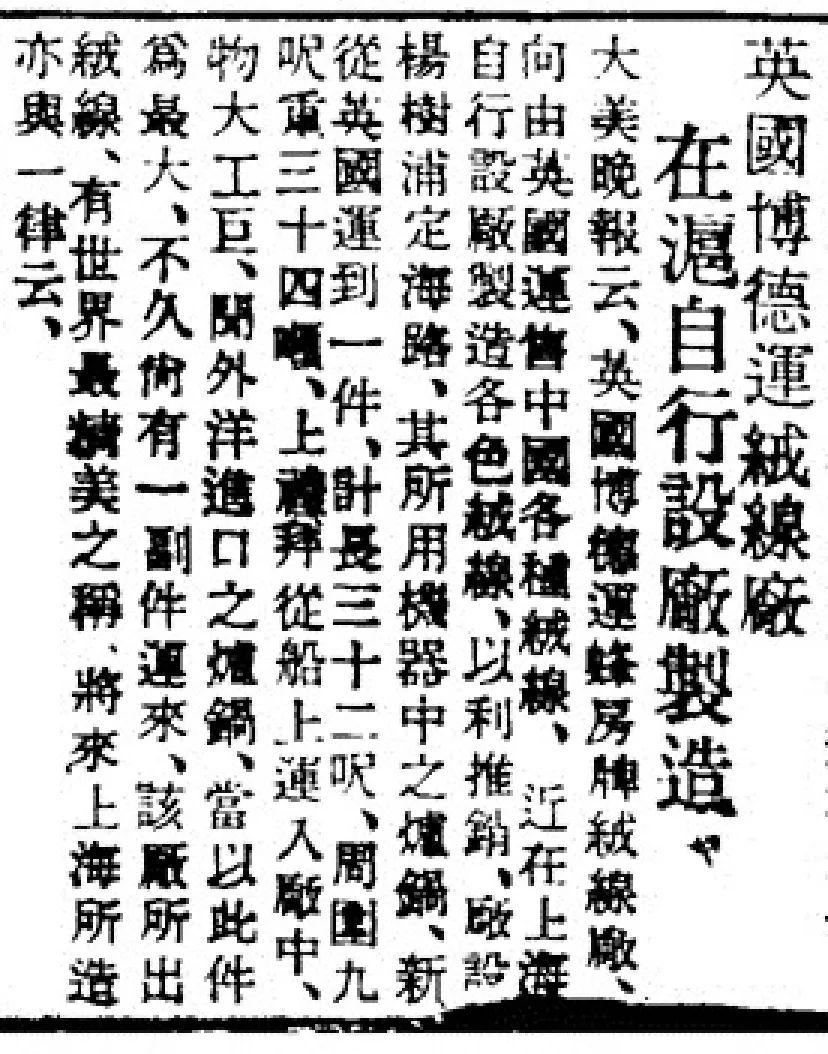 英國博德運絨線廠
在滬自行設廠製造、
大美晚報云、英國博德運蜂房牌絨線廠、
向由英國運售中國各種絨線、近在上海
自行設廠製造各色絨線、以利推銷、廠設
楊樹浦定海路、其所用機器中之爐鍋、新
從英國運到一件、計長三十二呎、周圍九
呎重三十四噸、上禮拜從船上運入廠中、
物大工巨、聞外洋進口之爐鍋、當以此件
爲最大、不久尙有一副件運來、該廠所出
絨線、有世界最精美之稱、將來上海所造
亦與一律云、